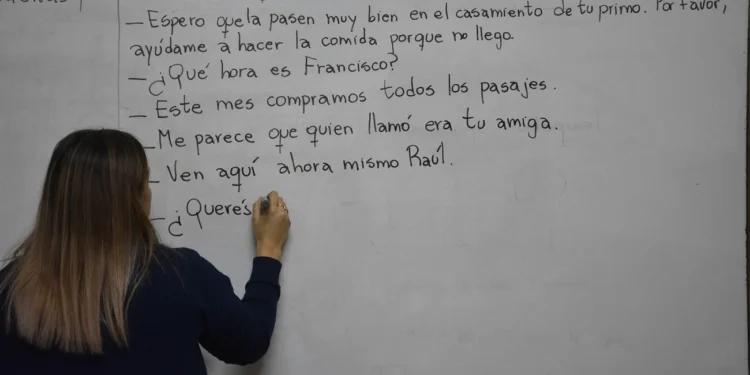 — Espero que la pasen muy bien en el casamiento de tu primo. Por favor,
ayúdame a hacer la comida porque no llego.
— ¿Qué hora es Francisco?
— Este mes compramos todos los pasajes.
— Me parece que quien llamó era tu amiga.
— Ven aquí ahora mismo Raúl.
— ¿Querés